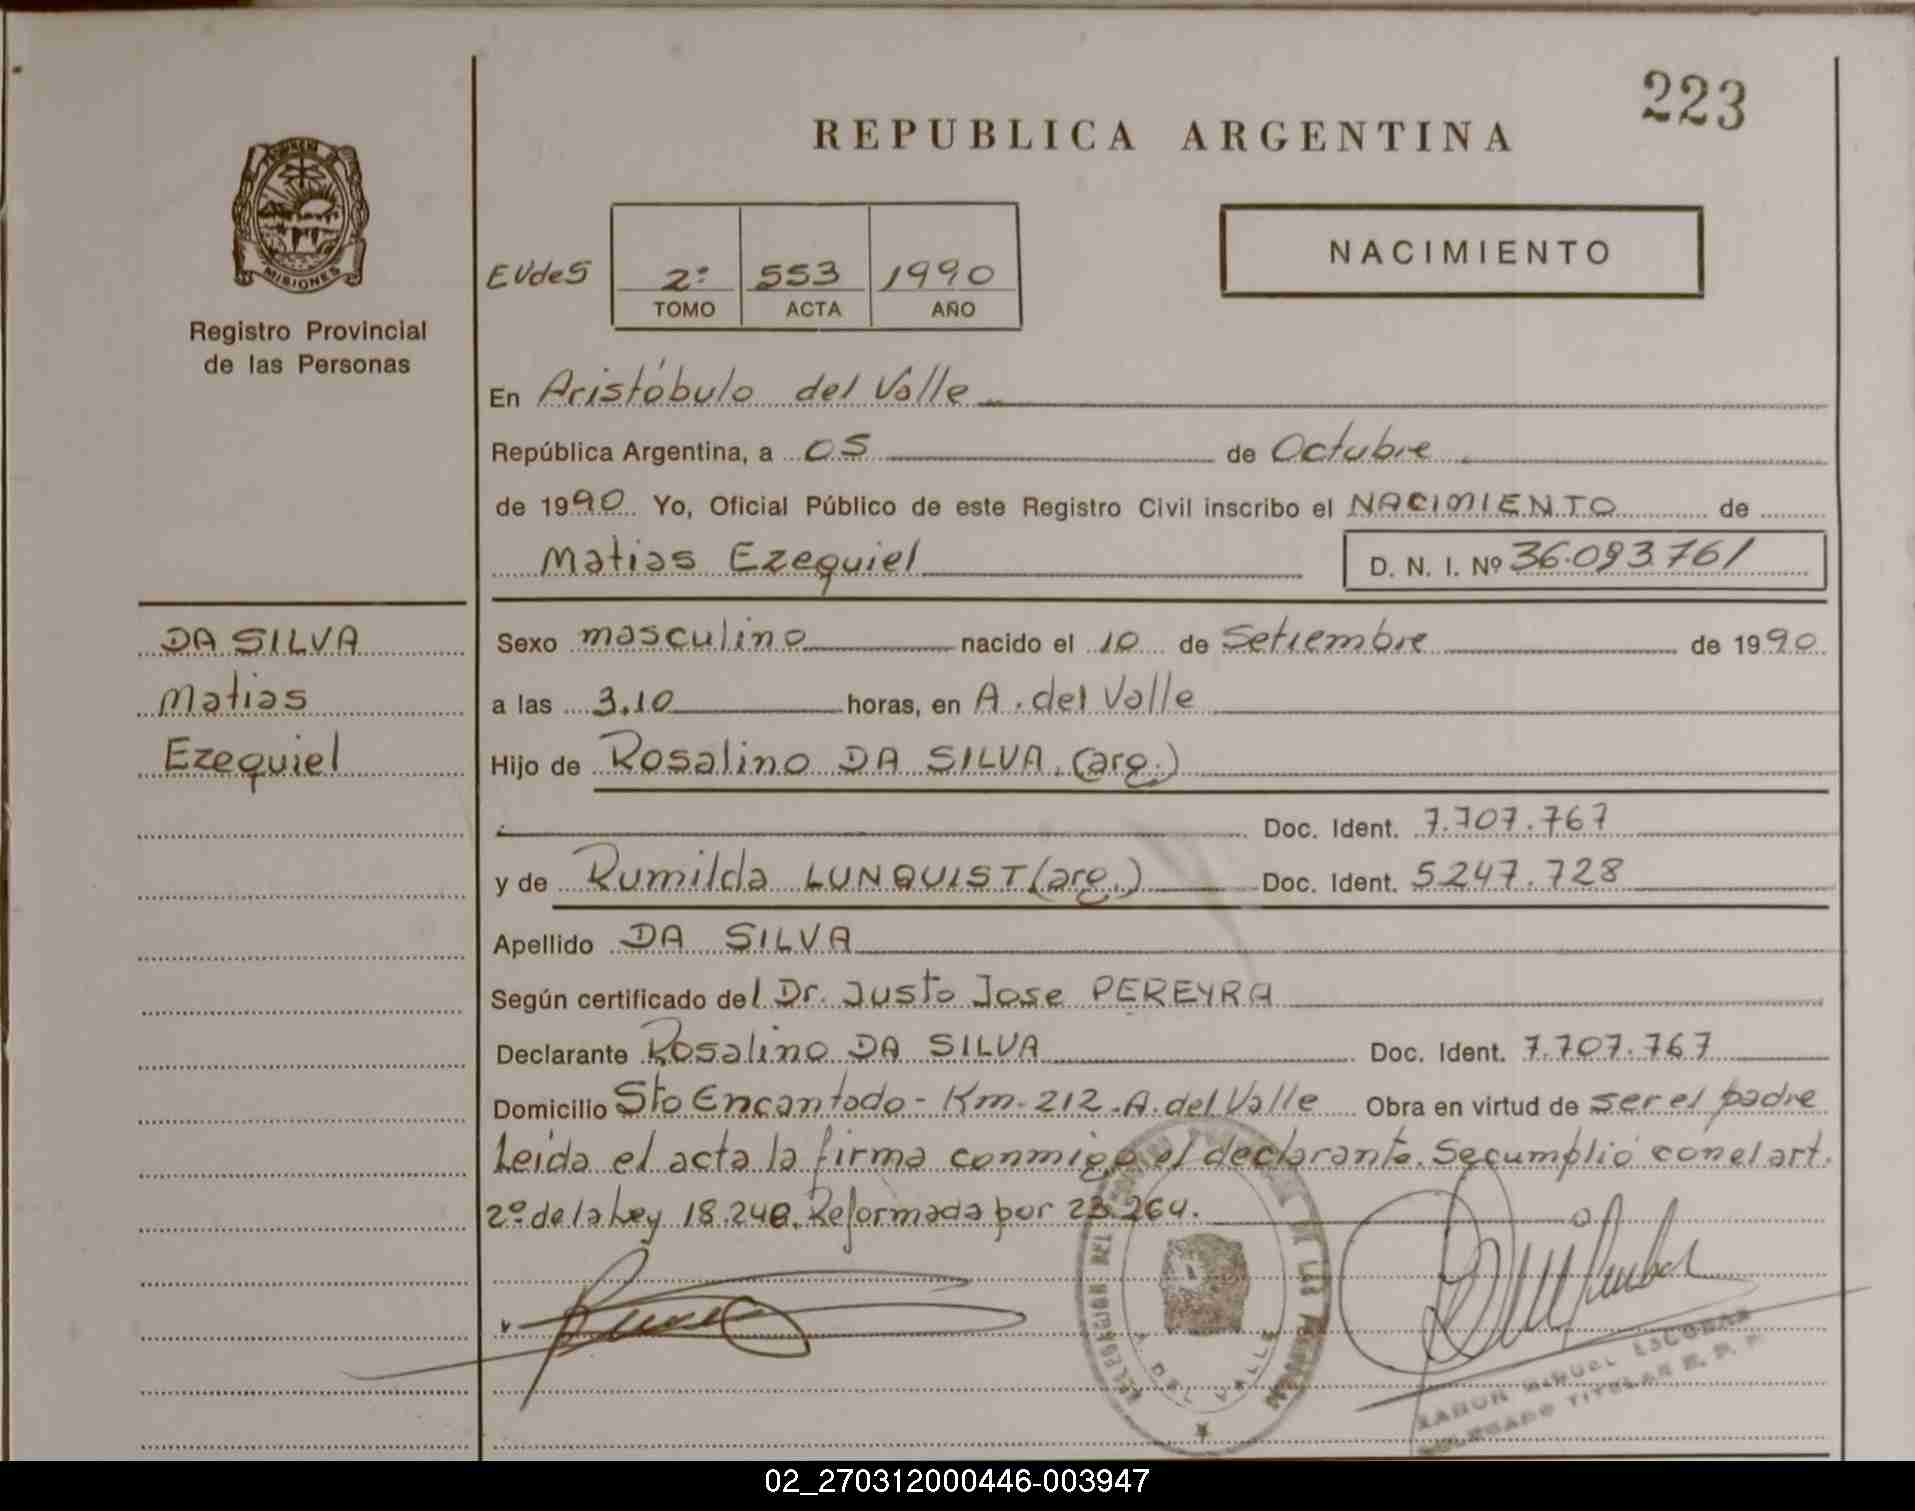 223
REPUBLICA ARGENTINA
PROVINCIA DE
MISIONES
Registro Provincial
de las Personas
NACIMIENTO
EVdeS 2º 553 1990
TOMO ACTA AÑO
En Aristóbulo del Valle
República Argentina, a 05 de Octubre
de 1990 Yo, Oficial Público de este Registro Civil inscribo el NACIMIENTO de
Matias Ezequiel D. N. I. Nº 36.093.761
DA SILVA
Matias
Ezequiel
Sexo masculino nacido el 10 de Setiembre de 1990
a las 3.10 horas, en A. del Valle
Hijo de Rosalino DA SILVA. (arg.)
Doc. Ident. 7.707.767
y de Rumilda LUNQUIST (arg.) Doc. Ident. 5247.728
Apellido DA SILVA
Según certificado del Dr. Justo Jose PEREYRA
Declarante Rosalino DA SILVA Doc. Ident. 7.707.767
Domicilio Sto Encantado - Km-212.A.del Valle Obra en virtud de ser el padre
Leída el acta la firma conmigo el declarante. Se cumplió con el art.
2º de la Ley 18.248. Reformada por 23.264.
DELEGACION DEL REGISTRO PROVINCIAL DE LAS PERSONAS
A. DEL VALLE
RAMON MIGUEL ESCOBAR
DELEGADO TITULAR R. P. P.
02_270312000446-003947